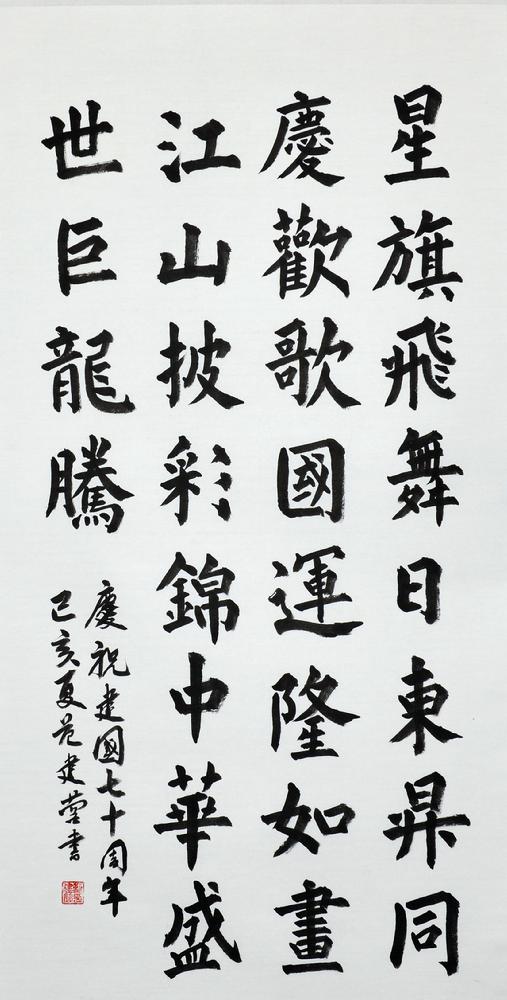 星旗飛舞日東昇同
慶歡歌國運隆如畫
江山披彩錦中華盛
世巨龍騰
慶祝建國七十周年
己亥夏范建營書